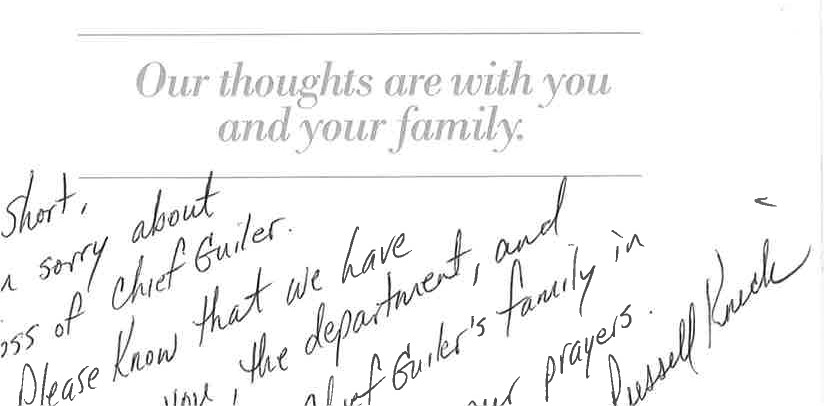 Our thoughts are with you
and your family.
Short,
sorry about
of Chief Guiler.
Please know that we have
you, the department, and
Guiler's family in
prayers.
Russell